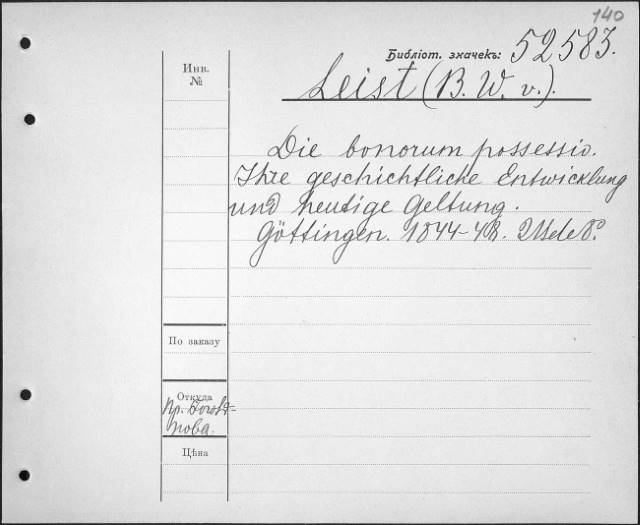 140
Библіот. значекъ: 52583.
Инв.
№
Leist (B. W. v.).
Die bonorum possessio.
Ihre geschichtliche Entwicklung
und heutige Geltung.
Göttingen. 1844-48. 2 Bde 8º.
По заказу
Откуда
Цѣна